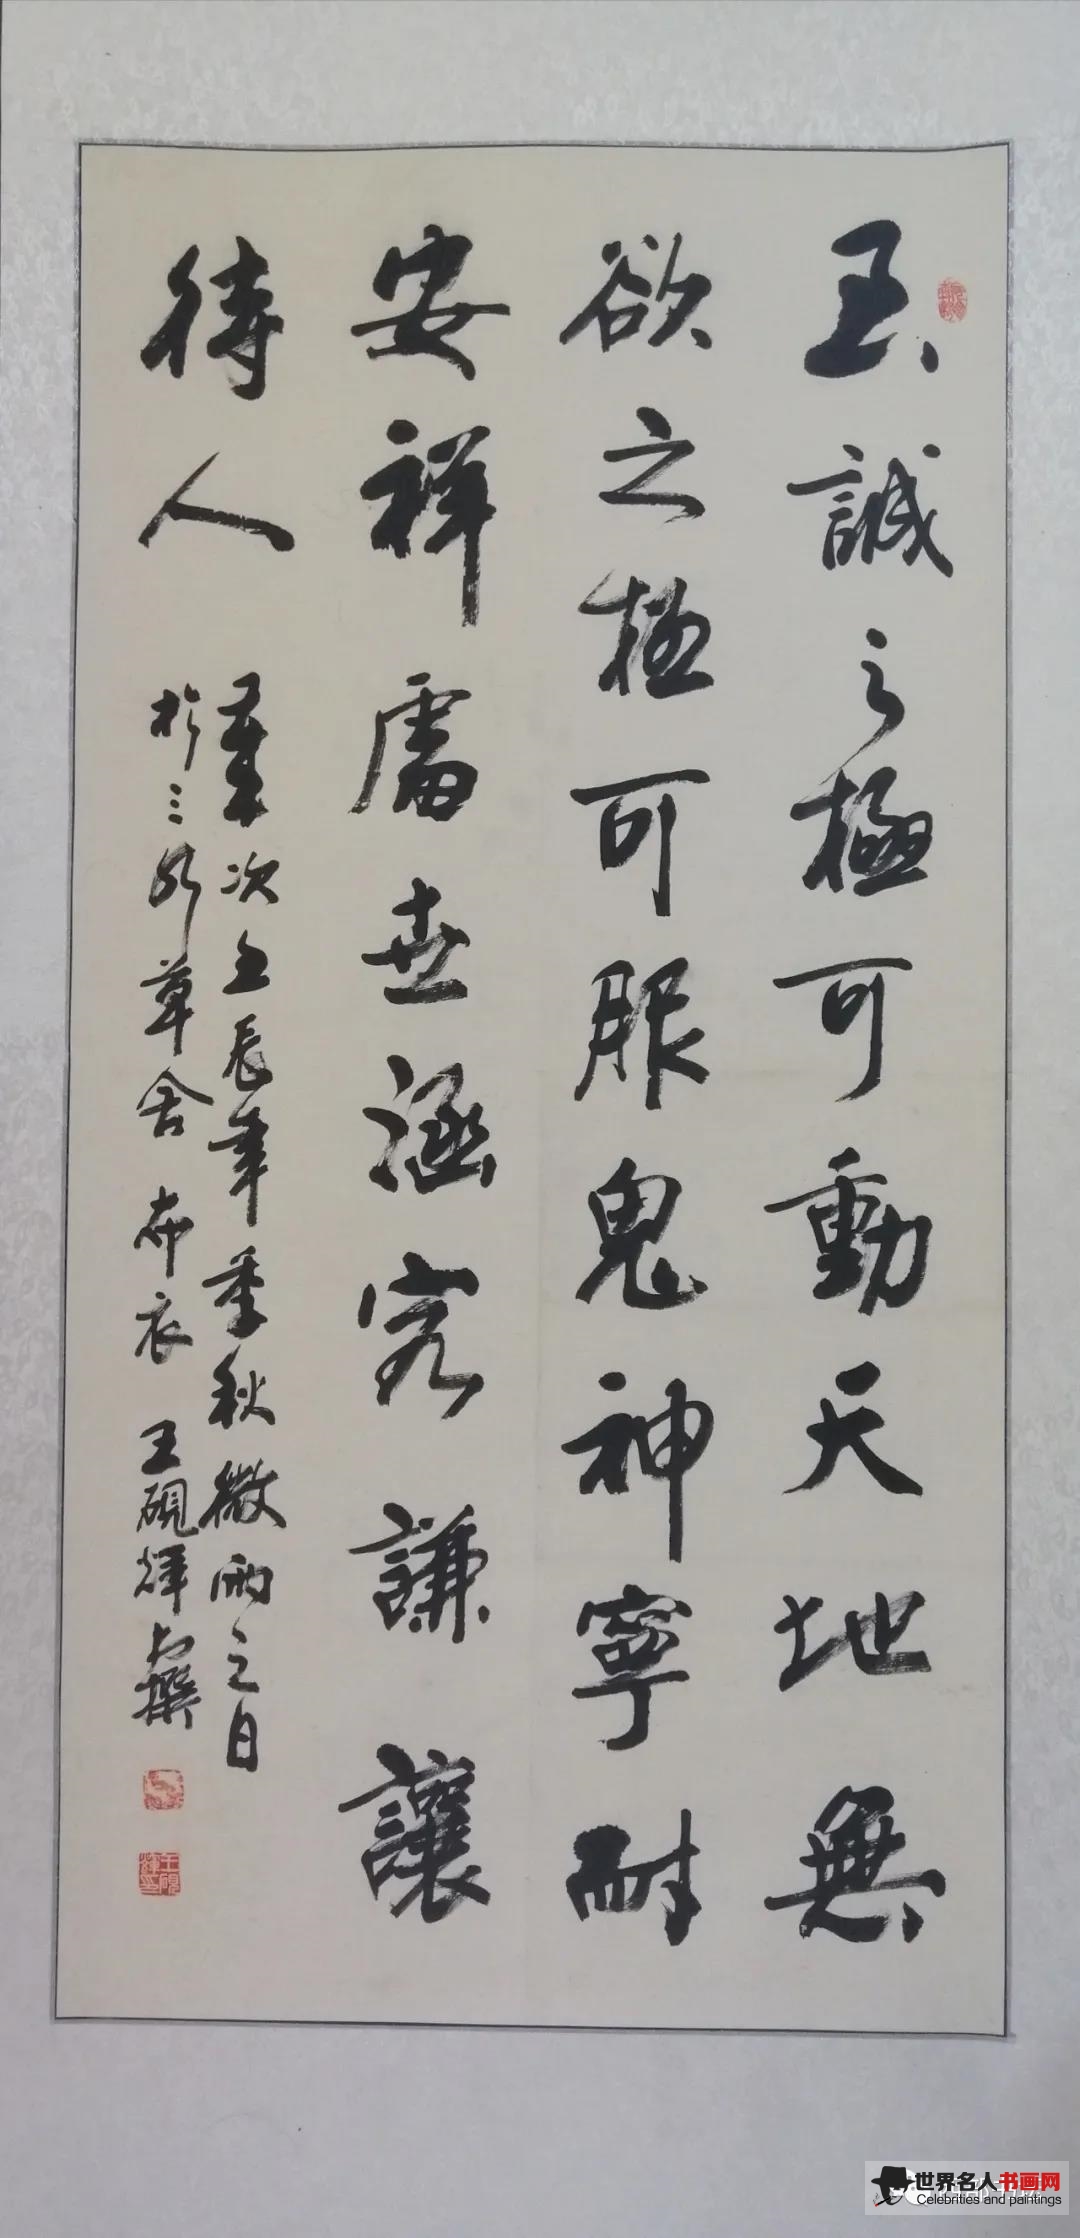 至誠之極可動天地無
欲之極可服鬼神寧耐
安祥處世涵容謙讓
待人
歲次壬辰年季秋微雨之日
於三研草舍 布衣 王硯輝 撰
王硯輝印
世界名人书画网
Celebrities and paintings